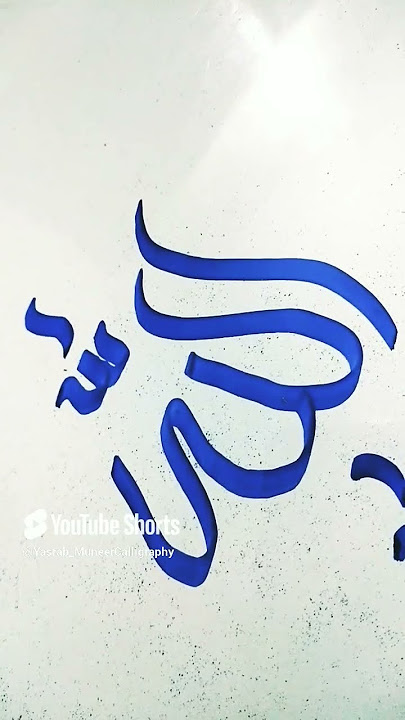 اللّٰه
YouTube Shorts
@Yasrab_MuneerCalligraphy